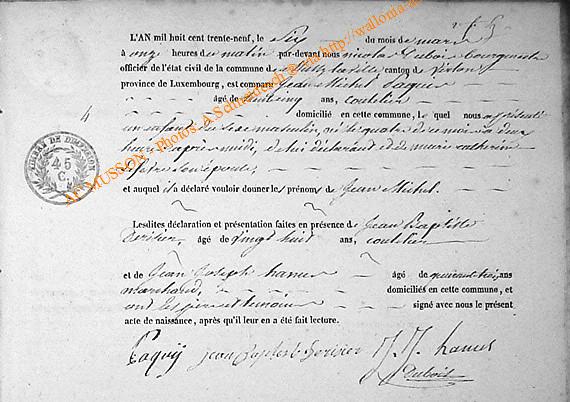 L'AN mil huit cent trente-neuf, le Six du mois de mars
à onze heures du matin par-devant nous nicolas Dubois Bourgmestre
officier de l'état civil de la commune de canton de Virton
province de Luxembourg, est comparu Jean Michel
âgé de ans, coutelier
domicilié en cette commune, lequel nous a présenté
un enfant de sexe masculin, né le quatre de ce mois à deux
heures après midi, de lui déclarant et de marie catherine
son épouse,
et auquel il a déclaré vouloir donner les prénoms de Jean Michel.
Lesdites déclaration et présentation faites en présence de Jean Baptiste
Serisier, âgé de vingt huit ans, coutelier
et de Jean Joseph hanus âgé de ans
marchand, domiciliés en cette commune, et
ont les père et témoins signé avec nous le présent
acte de naissance, après qu'il leur en a été fait lecture.
Jean Baptiste Serisier J. J. hanus
Dubois
4
45
C.
AC MUSSON - Photos A.Schumnach @ClaP http://wallonia-as